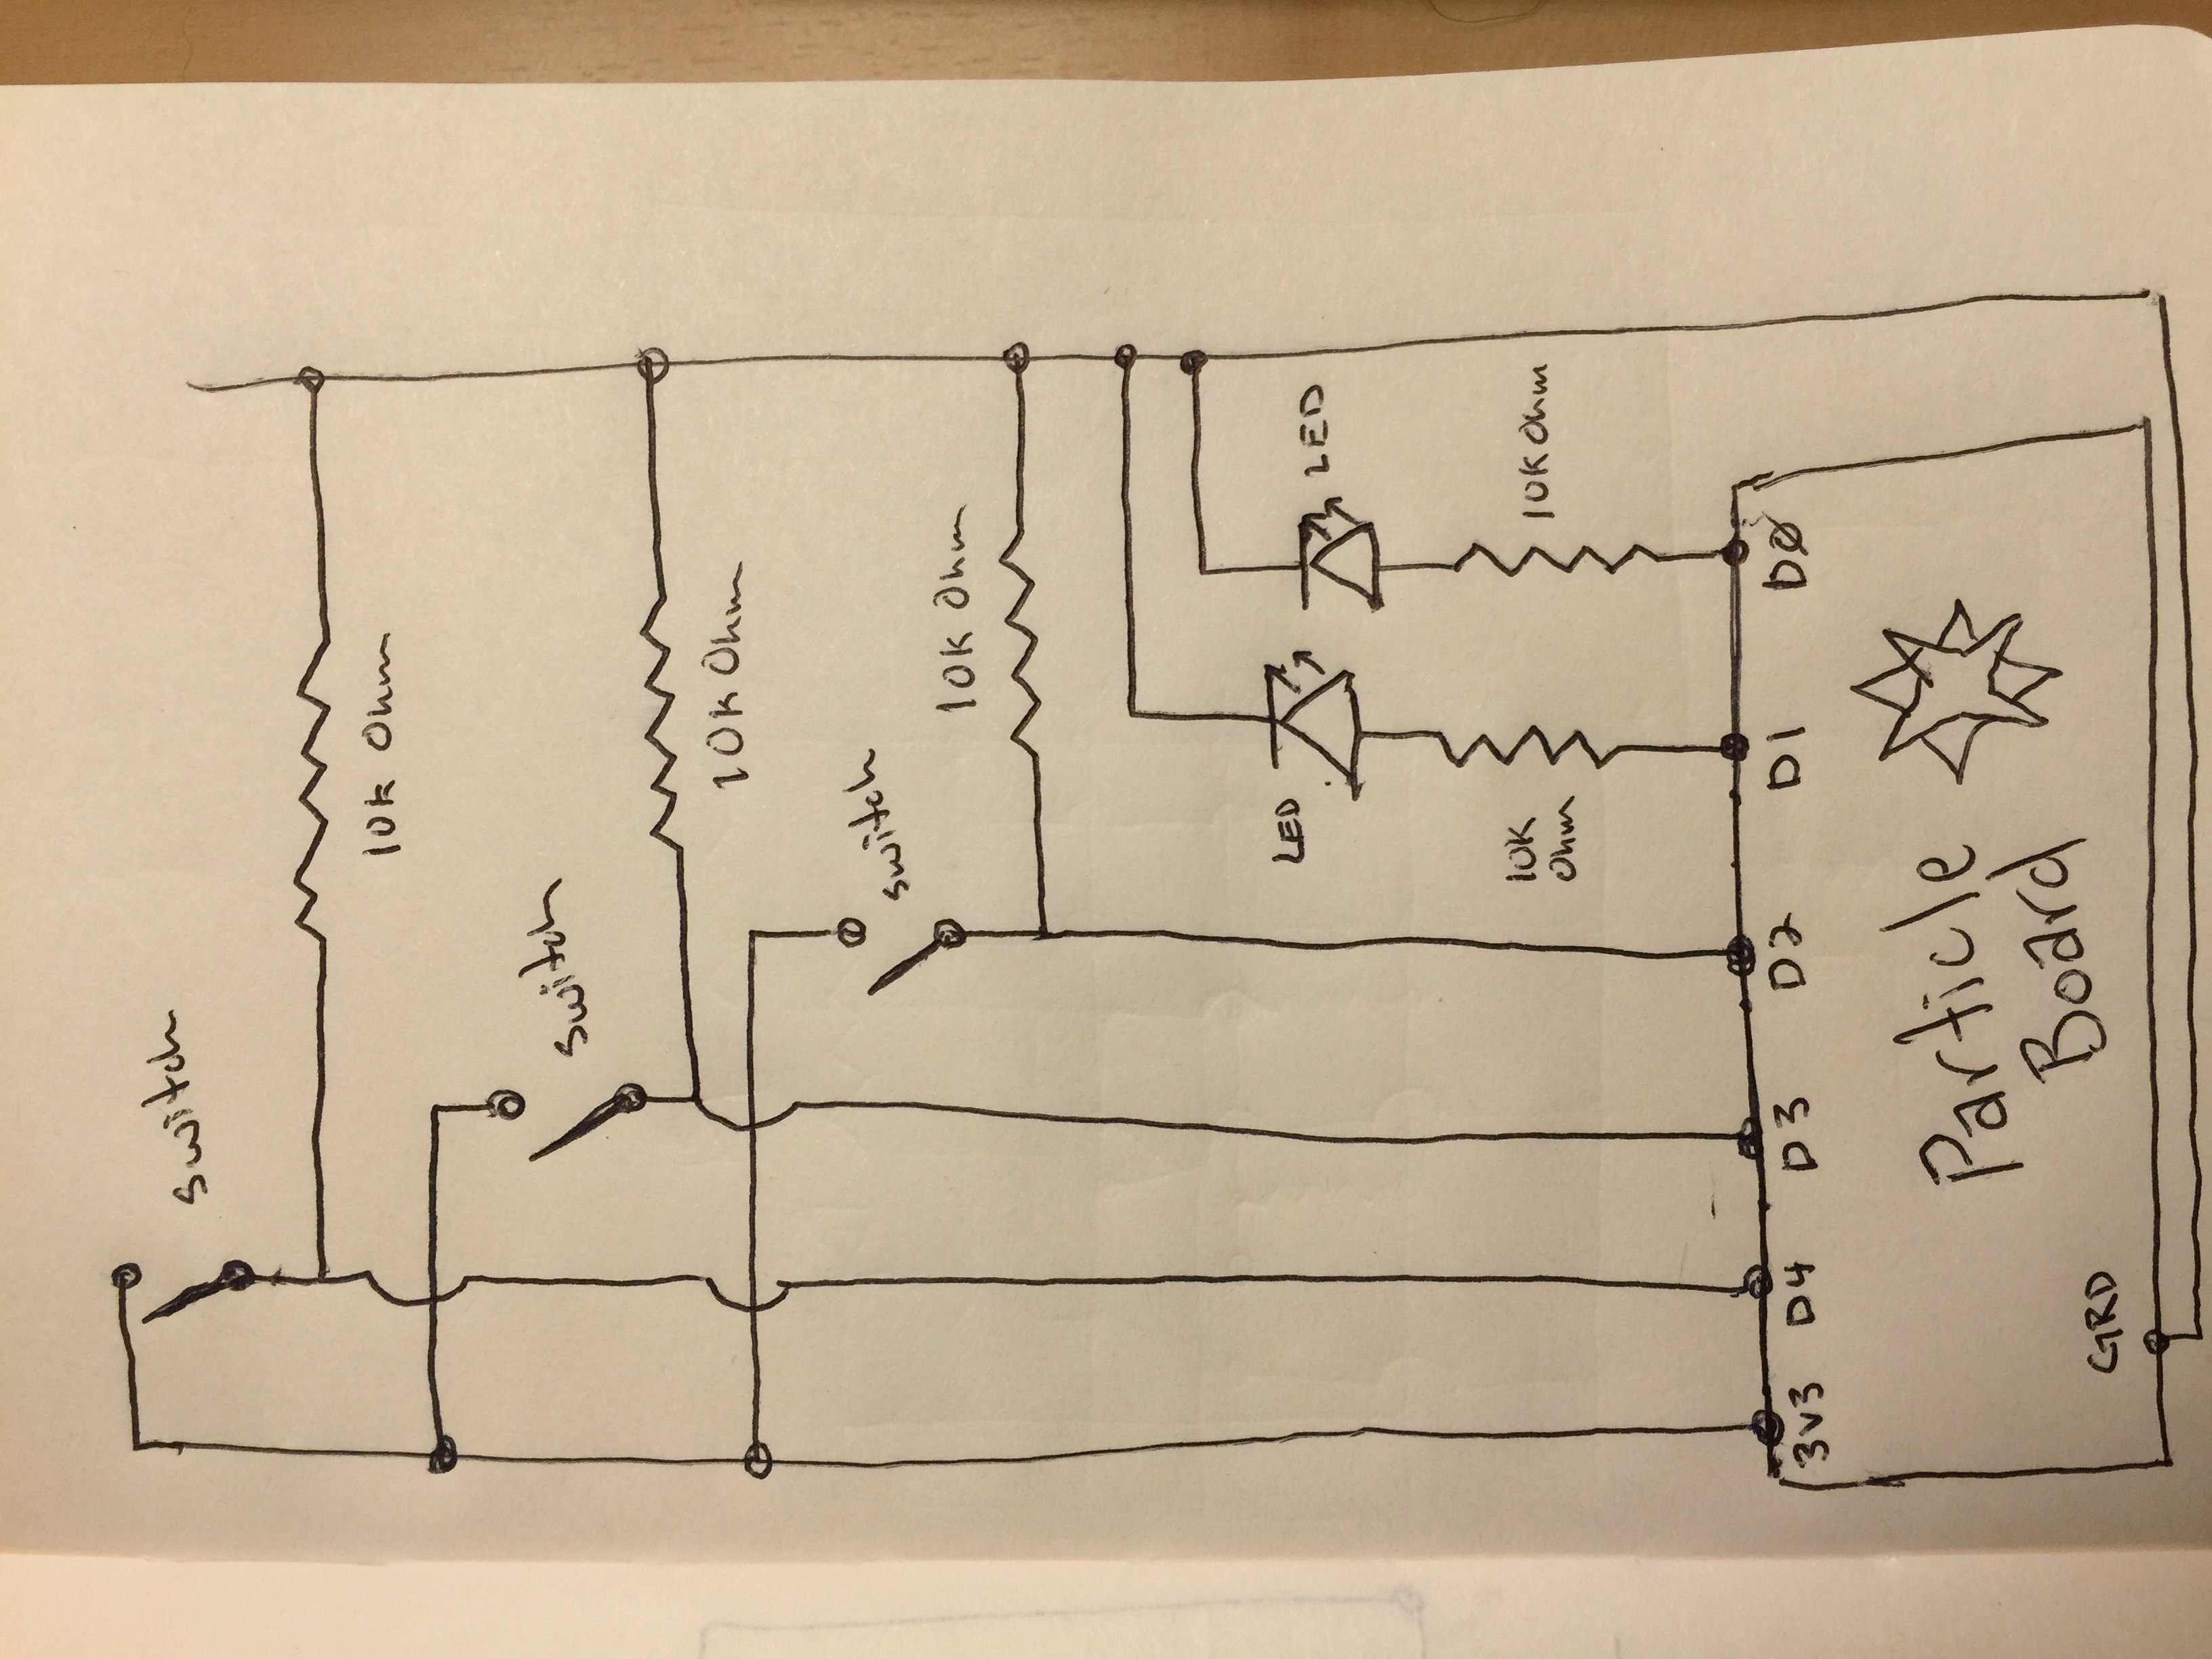 Switch
10K Ohm
Switch
10K Ohm
switch
10K Ohm
LED
LED
10K
Ohm
10K Ohm
3V3 D4 D3 D2 D1 DØ
Particle
Board
GRD